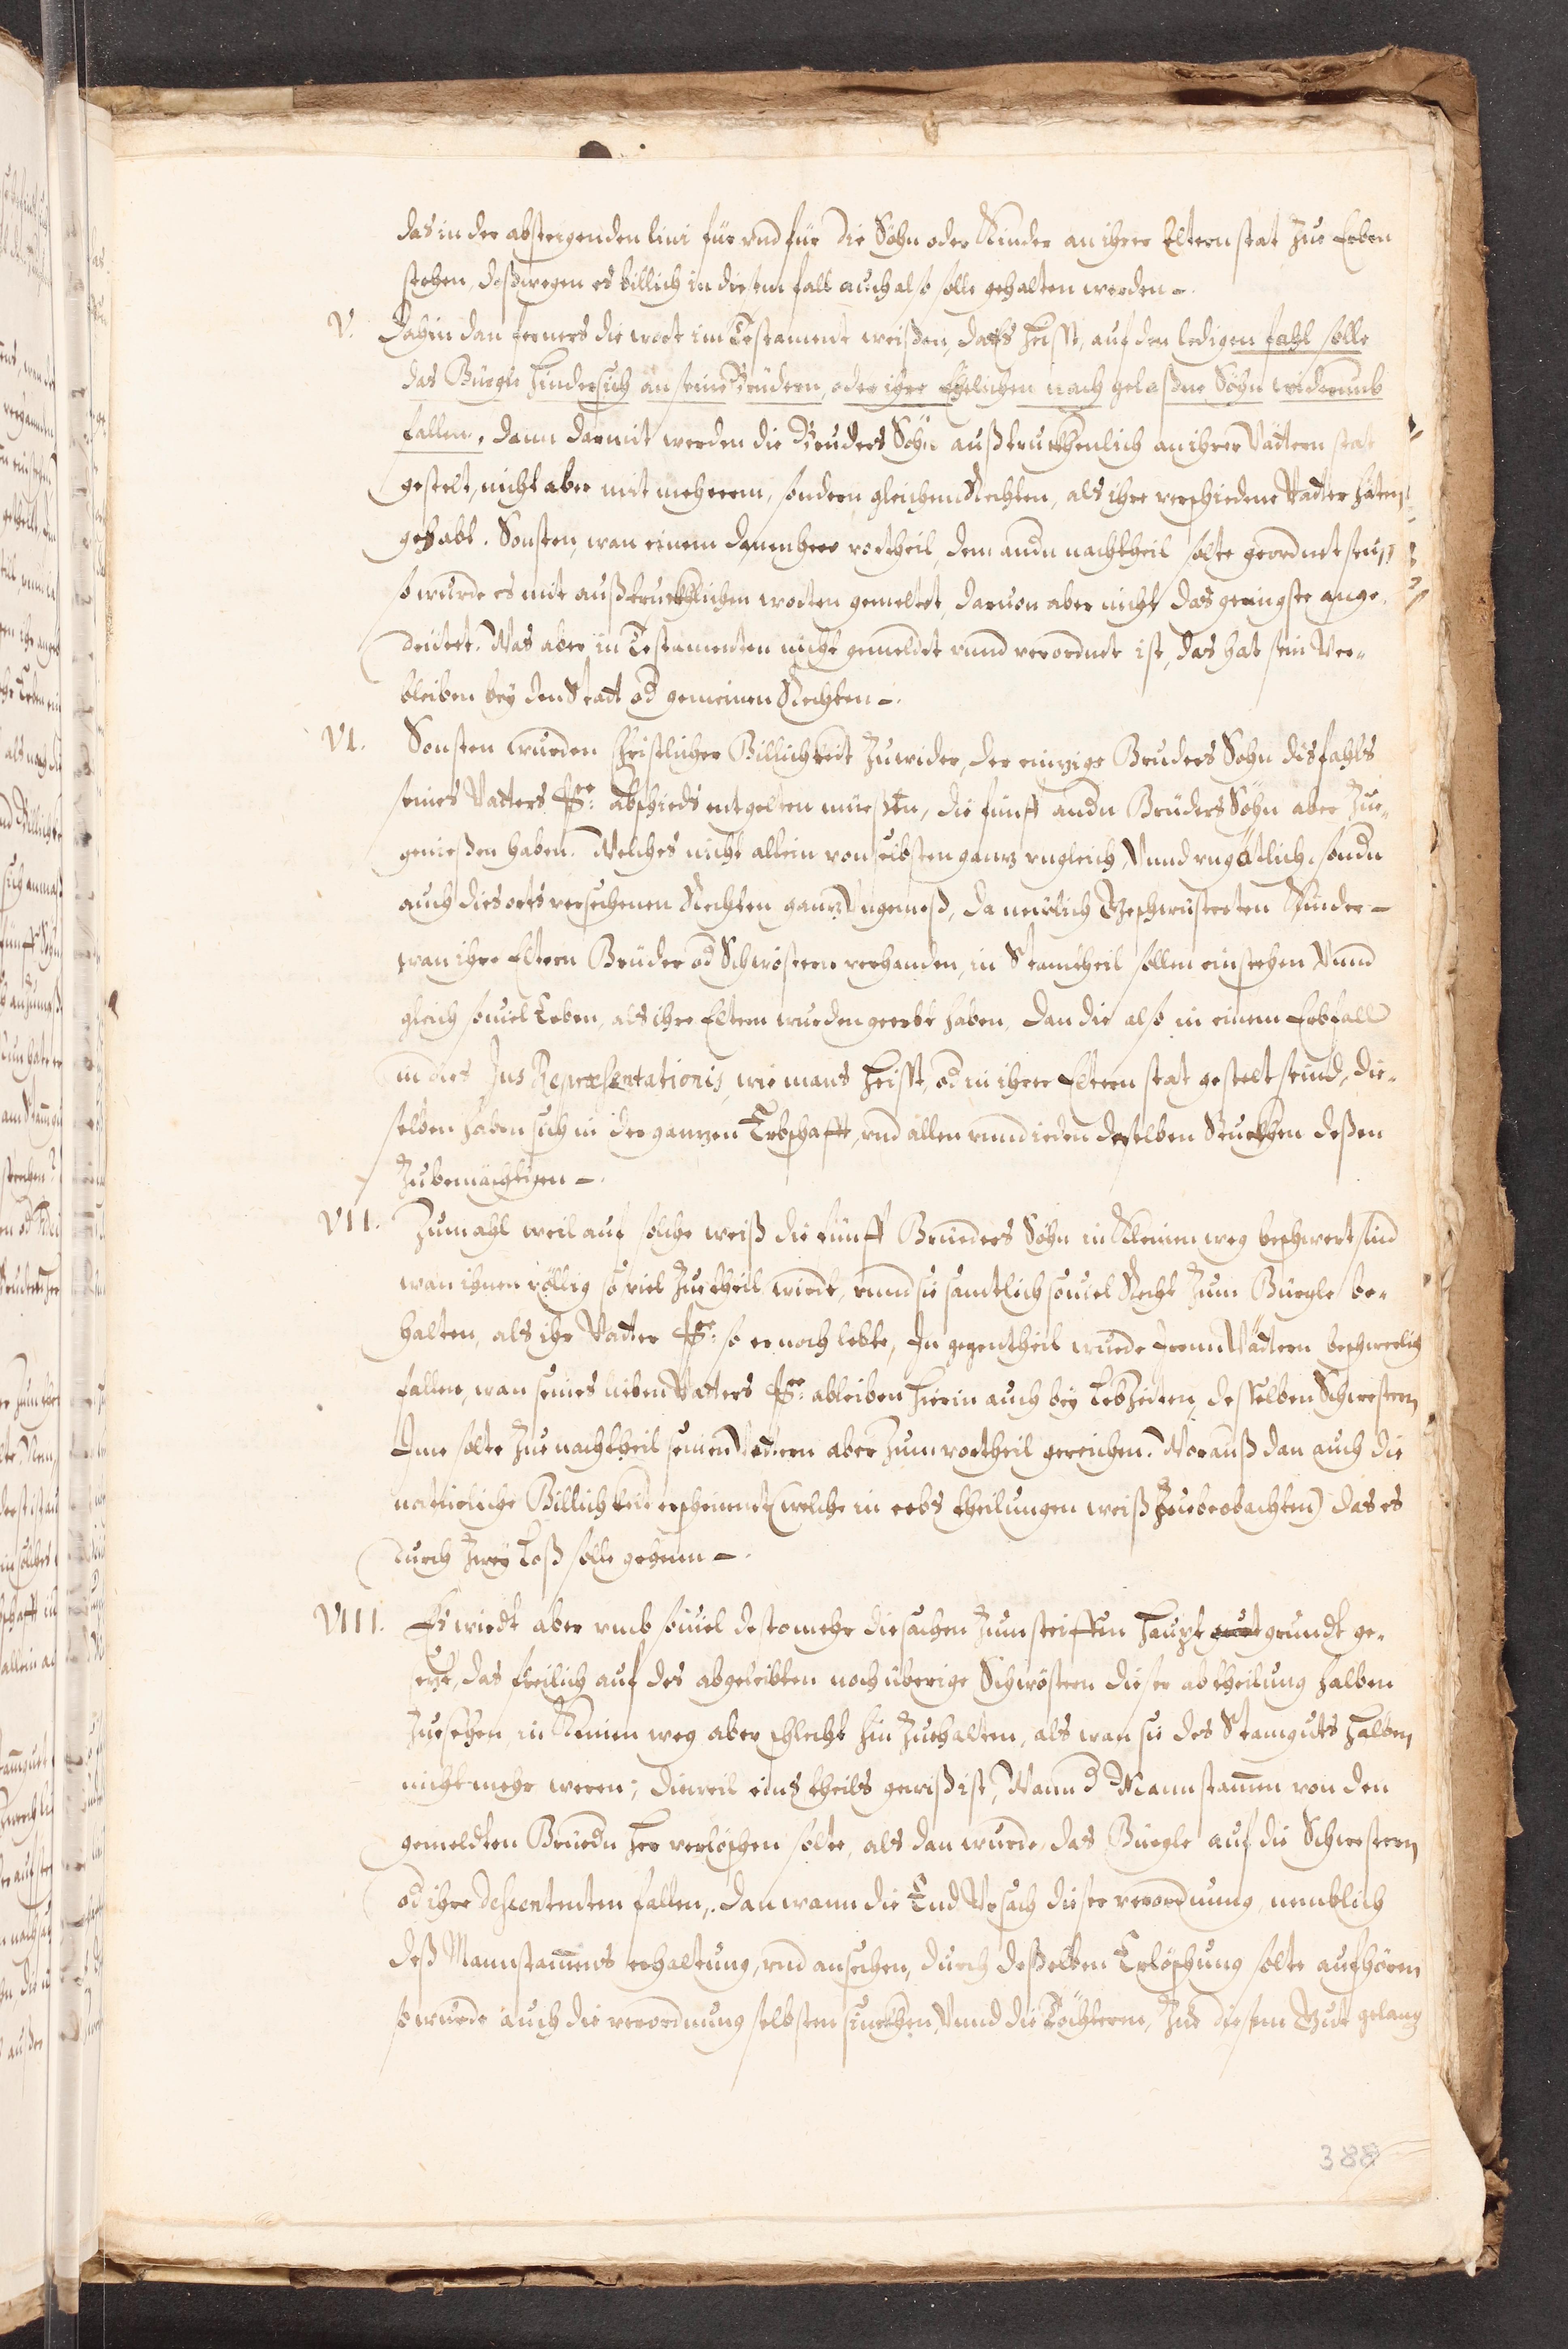 das in der absteigenden lini für vnd für die Söhn oder Kinder an ihrer Eltern stat zue Erben
stehen, deßwegen es billich in diesem fall auch also solle gehalten werden –.
V. Dahin dan ferners die wort im Testament weißen, da es heisst, auf den ledigen fahl solle
das Burgle hindersich an seine Brüdern, oder ihre Ehelichen nach gelaßne Söhn widerumb
fallen, dann darmit werden die Bruders Söhn außtruckhenlich an ihrer Vättern stat
gestelt, nicht aber mit mehrerm, sondern gleichem Rechten, als ihre verschiedene Vatter haten
gehabt. Sonsten, wan einem dannenhero vortheil, dem andn nachtheil solte geordnet sein,
so wurde es mit außtruckhlichen worten gemeltet, daruon aber nicht das geringste ange-
deutet. Was aber in Testamenten nicht gemeldet vnnd verordnet ist, das hat sein Ver-
bleiben bey den Statt od gemeinen Rechten –.
VI. Sonsten wurden Christlicher Billichkeit zuwider, der einzige Bruders Sohn disfahls
seines Vatters Se: abschieds entgelten müeßen, die fünff andn Brüders Söhn aber zue-
genießen haben. Welches nicht allein von selbsten ganz vngleich, Vnnd vngötlich, sondn
auch dies orts versehenen Rechten ganz Vngemeß, da nemlich Geschwüsterten Kinder –
wan ihre Eltern Brüder od Schwöstern verhanden, in Stamtheil sollen einstehen Vnnd
gleich souiel Erben, als ihre Eltern wurden geerbt haben, dan die also in einem Erbfall
in dies Jus Repræsentationis, wie mans heisst, od in ihrer Eltern stat gestelt seind, die-
selben haben sich in der ganzen Erbschafft, vnd allen vnnd ieden deßelben Stuckhen deßen
zubemächtigen –.
VII. Zumahl weil auf solche weiß die fünff Brueders Söhn in Kleinen weg beschwert sind
wan ihnen völlig so viel zue theil wirdt, vnnd sie samtlich souiel Recht zum Burgle be-
halten, als ihr Vatter Se: so er noch lebte, In gegentheil wurde Irem Vättern beschwerlich
fallen, wan seines lieben Vatters Se: ableiben hierin auch bey Lebzeiten, desselben Schwestern
Ime solte zue nachtheil seinen Vettern aber zum vortheil gereichen. Worauß dan auch die
natürliche Billichkeit erscheinet (welche in erbs theilungen weiß zue beobachten) das es
durch zwey Loß solle gehnen –.
VIII. Es wirdt aber vmb souiel desto mehr die sachen zum steiffen haupt grundt ge-
sezt, das freilich auf des abgeleibten noch überige Schwöstern dieser abtheilung halben
zuesehen, in Keinen weg aber schlecht hin zuehalten, als wan sie des Stamguts halben
nicht mehr weren; dieweil eins theils gewiß ist, Wann d Mannstammen von den
gemeldten Brüedn her verlöschen solte, als dan wurde, das Burgle auf die Schwestern
od ihre descentenden fallen, dan wann die End Vrsach dieser verordnung, nemblich
deß Mannstammens erhaltung, vnd ansehen, durch deßelben Erlöschung solte aufhören
so wurde auch die verordnung selbsten sinckhen, Vnnd die Töchtern, zue diesem Gut gelang
388